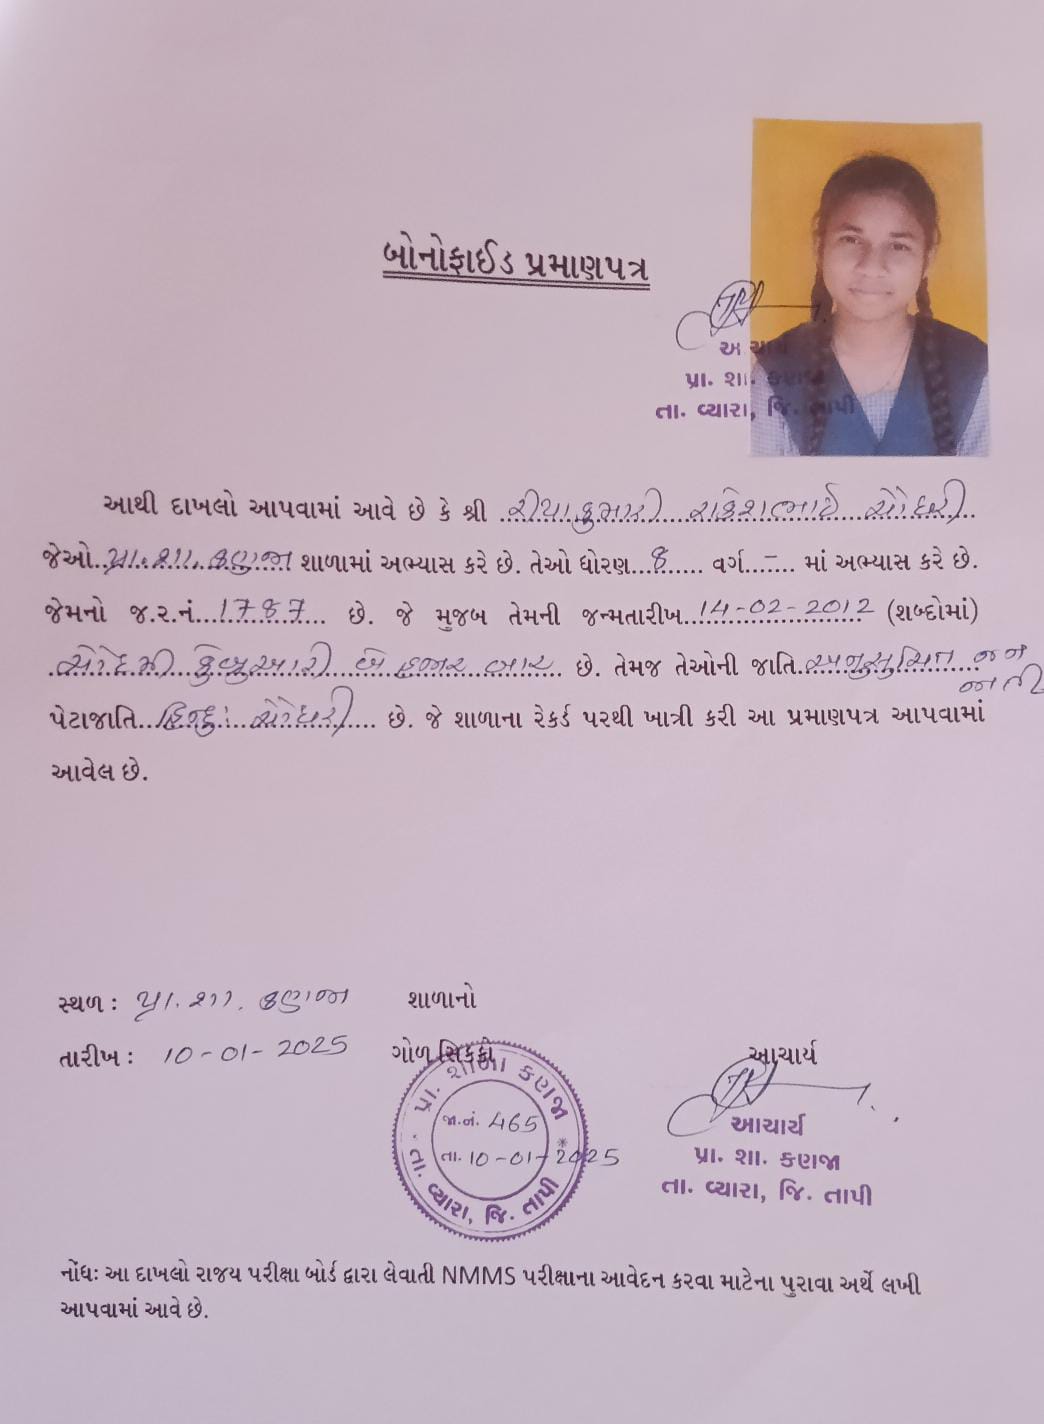 બોનોફાઈડ પ્રમાણપત્ર
આચાર્ય
પ્રા. શા. કણજા
તા. વ્યારા, જિ. તાપી
આથી દાખલો આપવામાં આવે છે કે શ્રી ..રીયાકુમારી રાકેશભાઈ ચૌધરી..
જેઓ..પ્રા.શા. કણજા શાળામાં અભ્યાસ કરે છે. તેઓ ધોરણ...8...... વર્ગ...-.... માં અભ્યાસ કરે છે.
જેમનો જ.ર.નં...1787... છે. જે મુજબ તેમની જન્મતારીખ...14-02-2012 (શબ્દોમાં)
ચૌદમી ફેબ્રુઆરી બે હજાર બાર છે. તેમજ તેઓની જાતિ..અનુસુચિત જન
જાતિ
પેટાજાતિ...હિન્દુ: ચૌધરી.... છે. જે શાળાના રેકર્ડ પરથી ખાત્રી કરી આ પ્રમાણપત્ર આપવામાં
આવેલ છે.
સ્થળ : પ્રા. શા. કણજા શાળાનો
તારીખ : 10-01-2025 ગોળ સિક્કો આચાર્ય
પ્રા. શાળા કણજા
જા.નં. 465
તા. 10-01-2025
તા. વ્યારા, જિ. તાપી
આચાર્ય
પ્રા. શા. કણજા
તા. વ્યારા, જિ. તાપી
નોંધઃ આ દાખલો રાજય પરીક્ષા બોર્ડ દ્વારા લેવાતી NMMS પરીક્ષાના આવેદન કરવા માટેના પુરાવા અર્થે લખી
આપવામાં આવે છે.